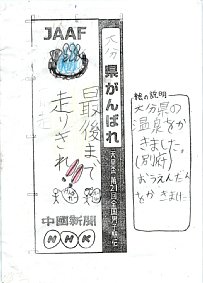 JAAF
大分県がんばれ
天皇盃 第21回 全国男子駅伝
最後まで
走りきれ!!
中国新聞
NHK
絵の説明
大分県の
温泉をか
きました。
(別府)
おうえんだん
をかきました